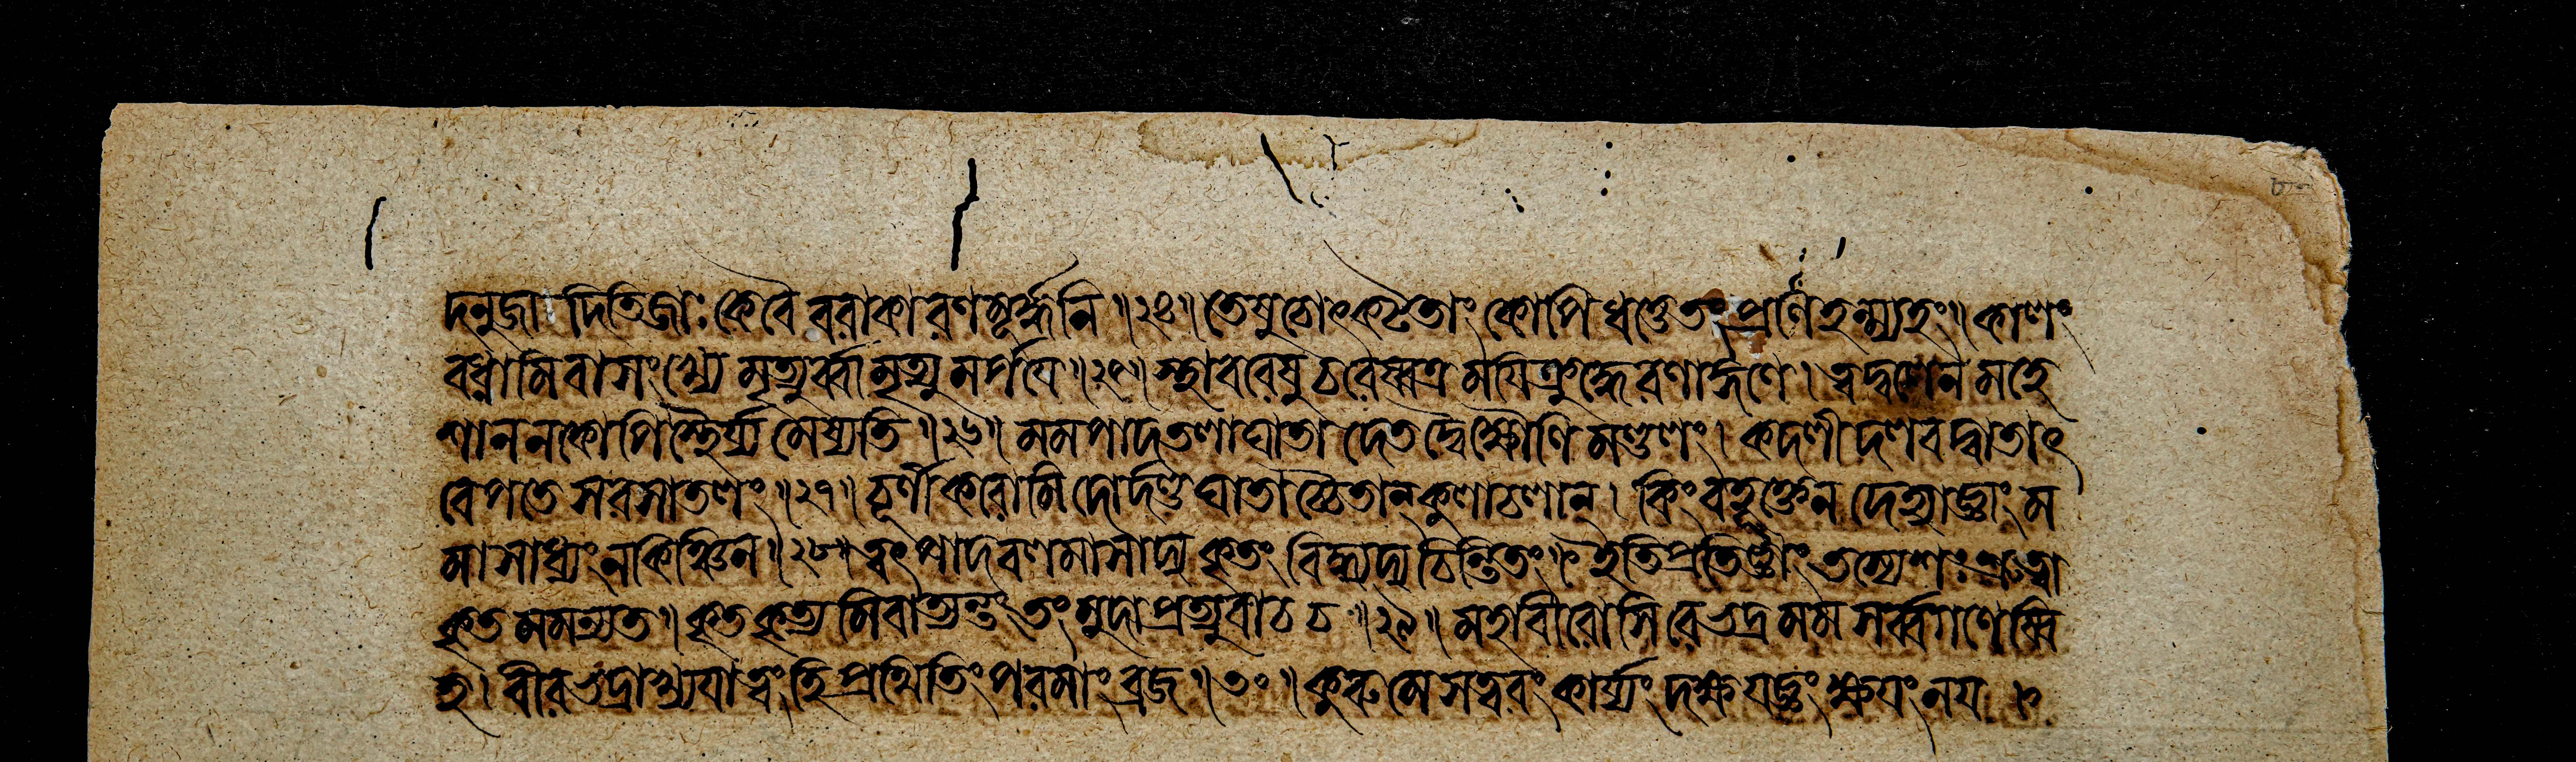 দনুজা দিতিজাঃ কেবৈ ববাকা বণমূৰ্দ্ধনি ॥২৪॥ তেষুবোৎকটৈতাং কোপি ধত্তেতং প্রণিহন্ম্যহং॥ কালং
বধ্নামিবাসংখ্যে মৃত্যুর্ব্বামৃত্যুমর্পযে ॥২৫॥ স্থাববেষুচবেষ্বত্র মযিক্রুদ্ধেবণাঙ্গণে। ত্বদ্বলেন মহে
শান নকোপিস্থৈর্য্যমেষ্যতি ॥২৬॥ মম পাদতলাঘাতা দেতদ্বৈক্ষৌণিমণ্ডলং। কদলীদলবদ্বাতাৎ
বেপতে সবসাতলং ॥২৭॥ চূর্ণীকবোমি দোর্দণ্ডঘাতাচ্চৈতান্ কুলাচলান্। কিংবহূক্তেন দেহ্যাজ্ঞাং ম
মাসাধ্যং নকিঞ্চিন ॥২৮॥ ত্বৎপাদবলমাসাদ্য কৃতং বিদ্ধ্যদ্য চিন্তিতং॥ ইতিপ্রতিজ্ঞাং তস্যেশঃ শ্রুত্বা
কৃতমমন্যত॥ কৃতকৃত্যমিবাত্যন্তং তং মুদা প্রত্যুবাচ চ ॥২৯॥ মহাবীরোসি রেভদ্র মম সর্ব্বগণেষ্বি
হ। বীরভদ্রাখ্যযা ত্বং হি প্রথিতিং পরমাং ব্রজ ॥৩০॥ কুরু মে সত্বরং কার্য্যং দক্ষযজ্ঞং ক্ষযং নয